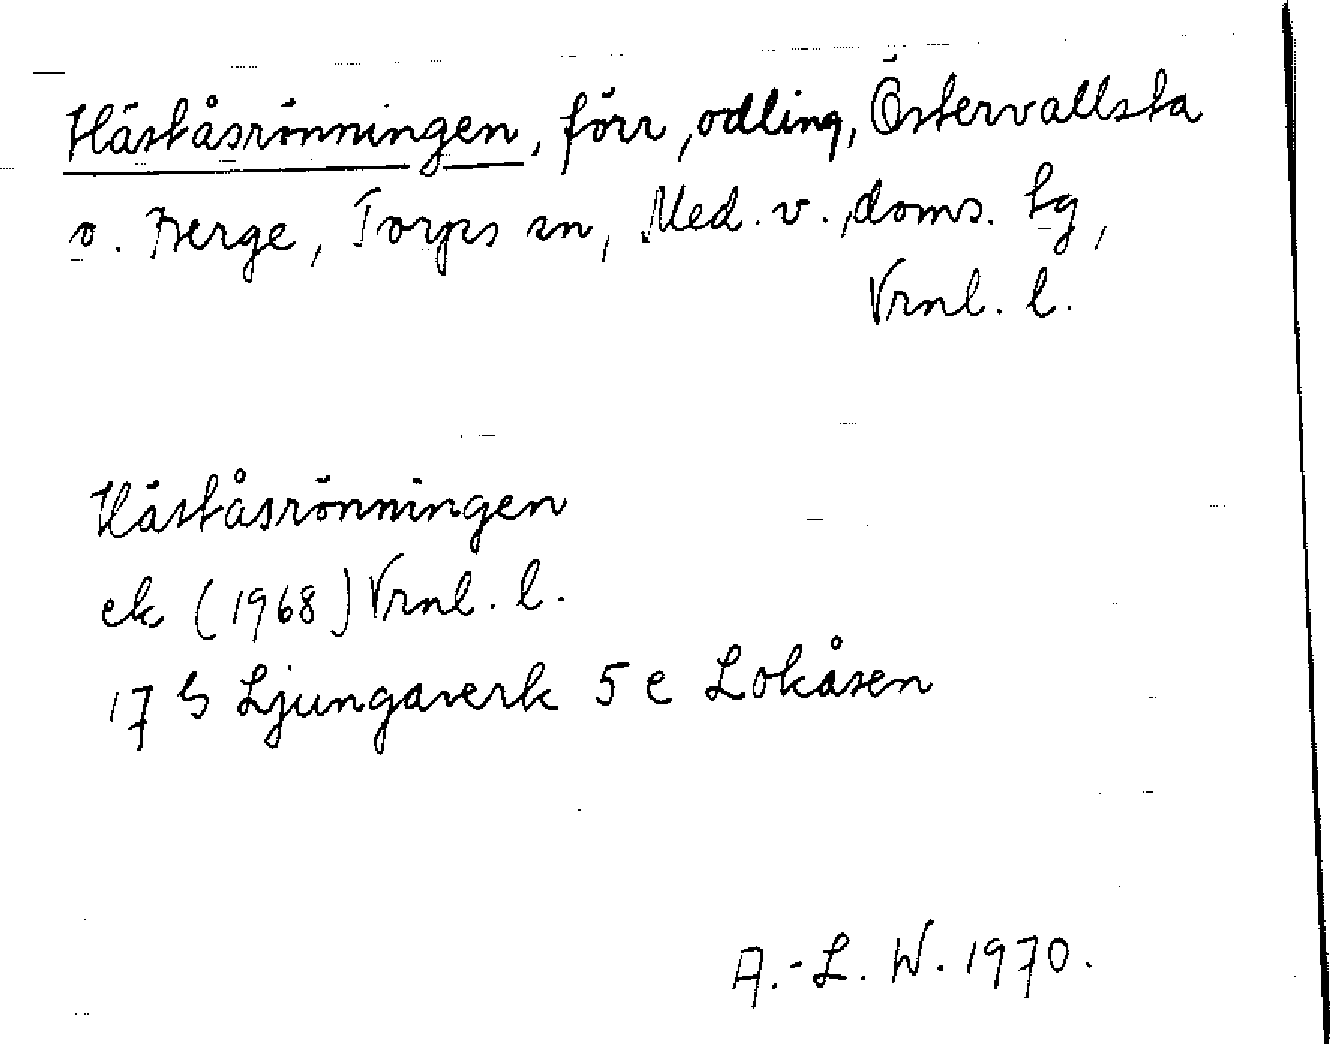 Häståsrönningen, förr odling, Östervallsta
o. Berge, Torps sn, Med. v. doms. tg,
Vrnl. l.
Häståsrönningen
ek (1968) Vrnl. l.
17 G Ljungaverk 5 e Lokåsen
A.-L. W. 1970.